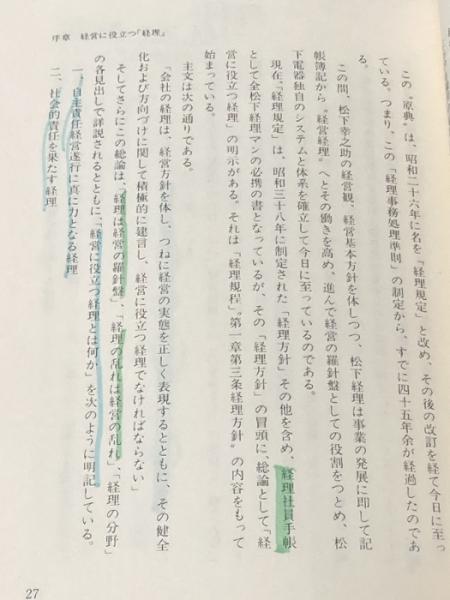 序章　経営に役立つ「経理」
この〝原典〟は、昭和二十六年に名を「経理規定」と改め、その後の改訂を経て今日に至っ
ている。つまり、この「経理事務処理準則」の制定から、すでに四十五年余が経過したのであ
る。
この間、松下幸之助の経営観、経営基本方針を体しつつ、松下経理は事業の発展に即して記
帳簿記から〝経営経理〟へとその働きを高め、進んで経営の羅針盤としての役割をつとめ、松
下電器独自のシステムと体系を確立して今日に至っているのである。
現在、「経理規定」は、昭和三十八年に制定された「経理方針」その他を含め、経理社員手帳
として全松下経理マンの必携の書となっているが、その「経理方針」の冒頭に、総論として、「経
営に役立つ経理」の明示がある。それは「経理規程」〝第一章第三条経理方針〟の内容をもって
始まっている。
主文は次の通りである。
「会社の経理は、経営方針を体し、つねに経営の実態を正しく表現するとともに、その健全
化および方向づけに関して積極的に建言し、経営に役立つ経理でなければならない」
そしてさらにこの総論は、「経理は経営の羅針盤」、「経理の乱れは経営の乱れ」、「経理の分野」
の各見出しで詳説されるとともに、「経営に役立つ経理とは何か」を次のように明記している。
一、自主責任経営遂行に真に力となる経理
二、社会的責任を果たす経理
27